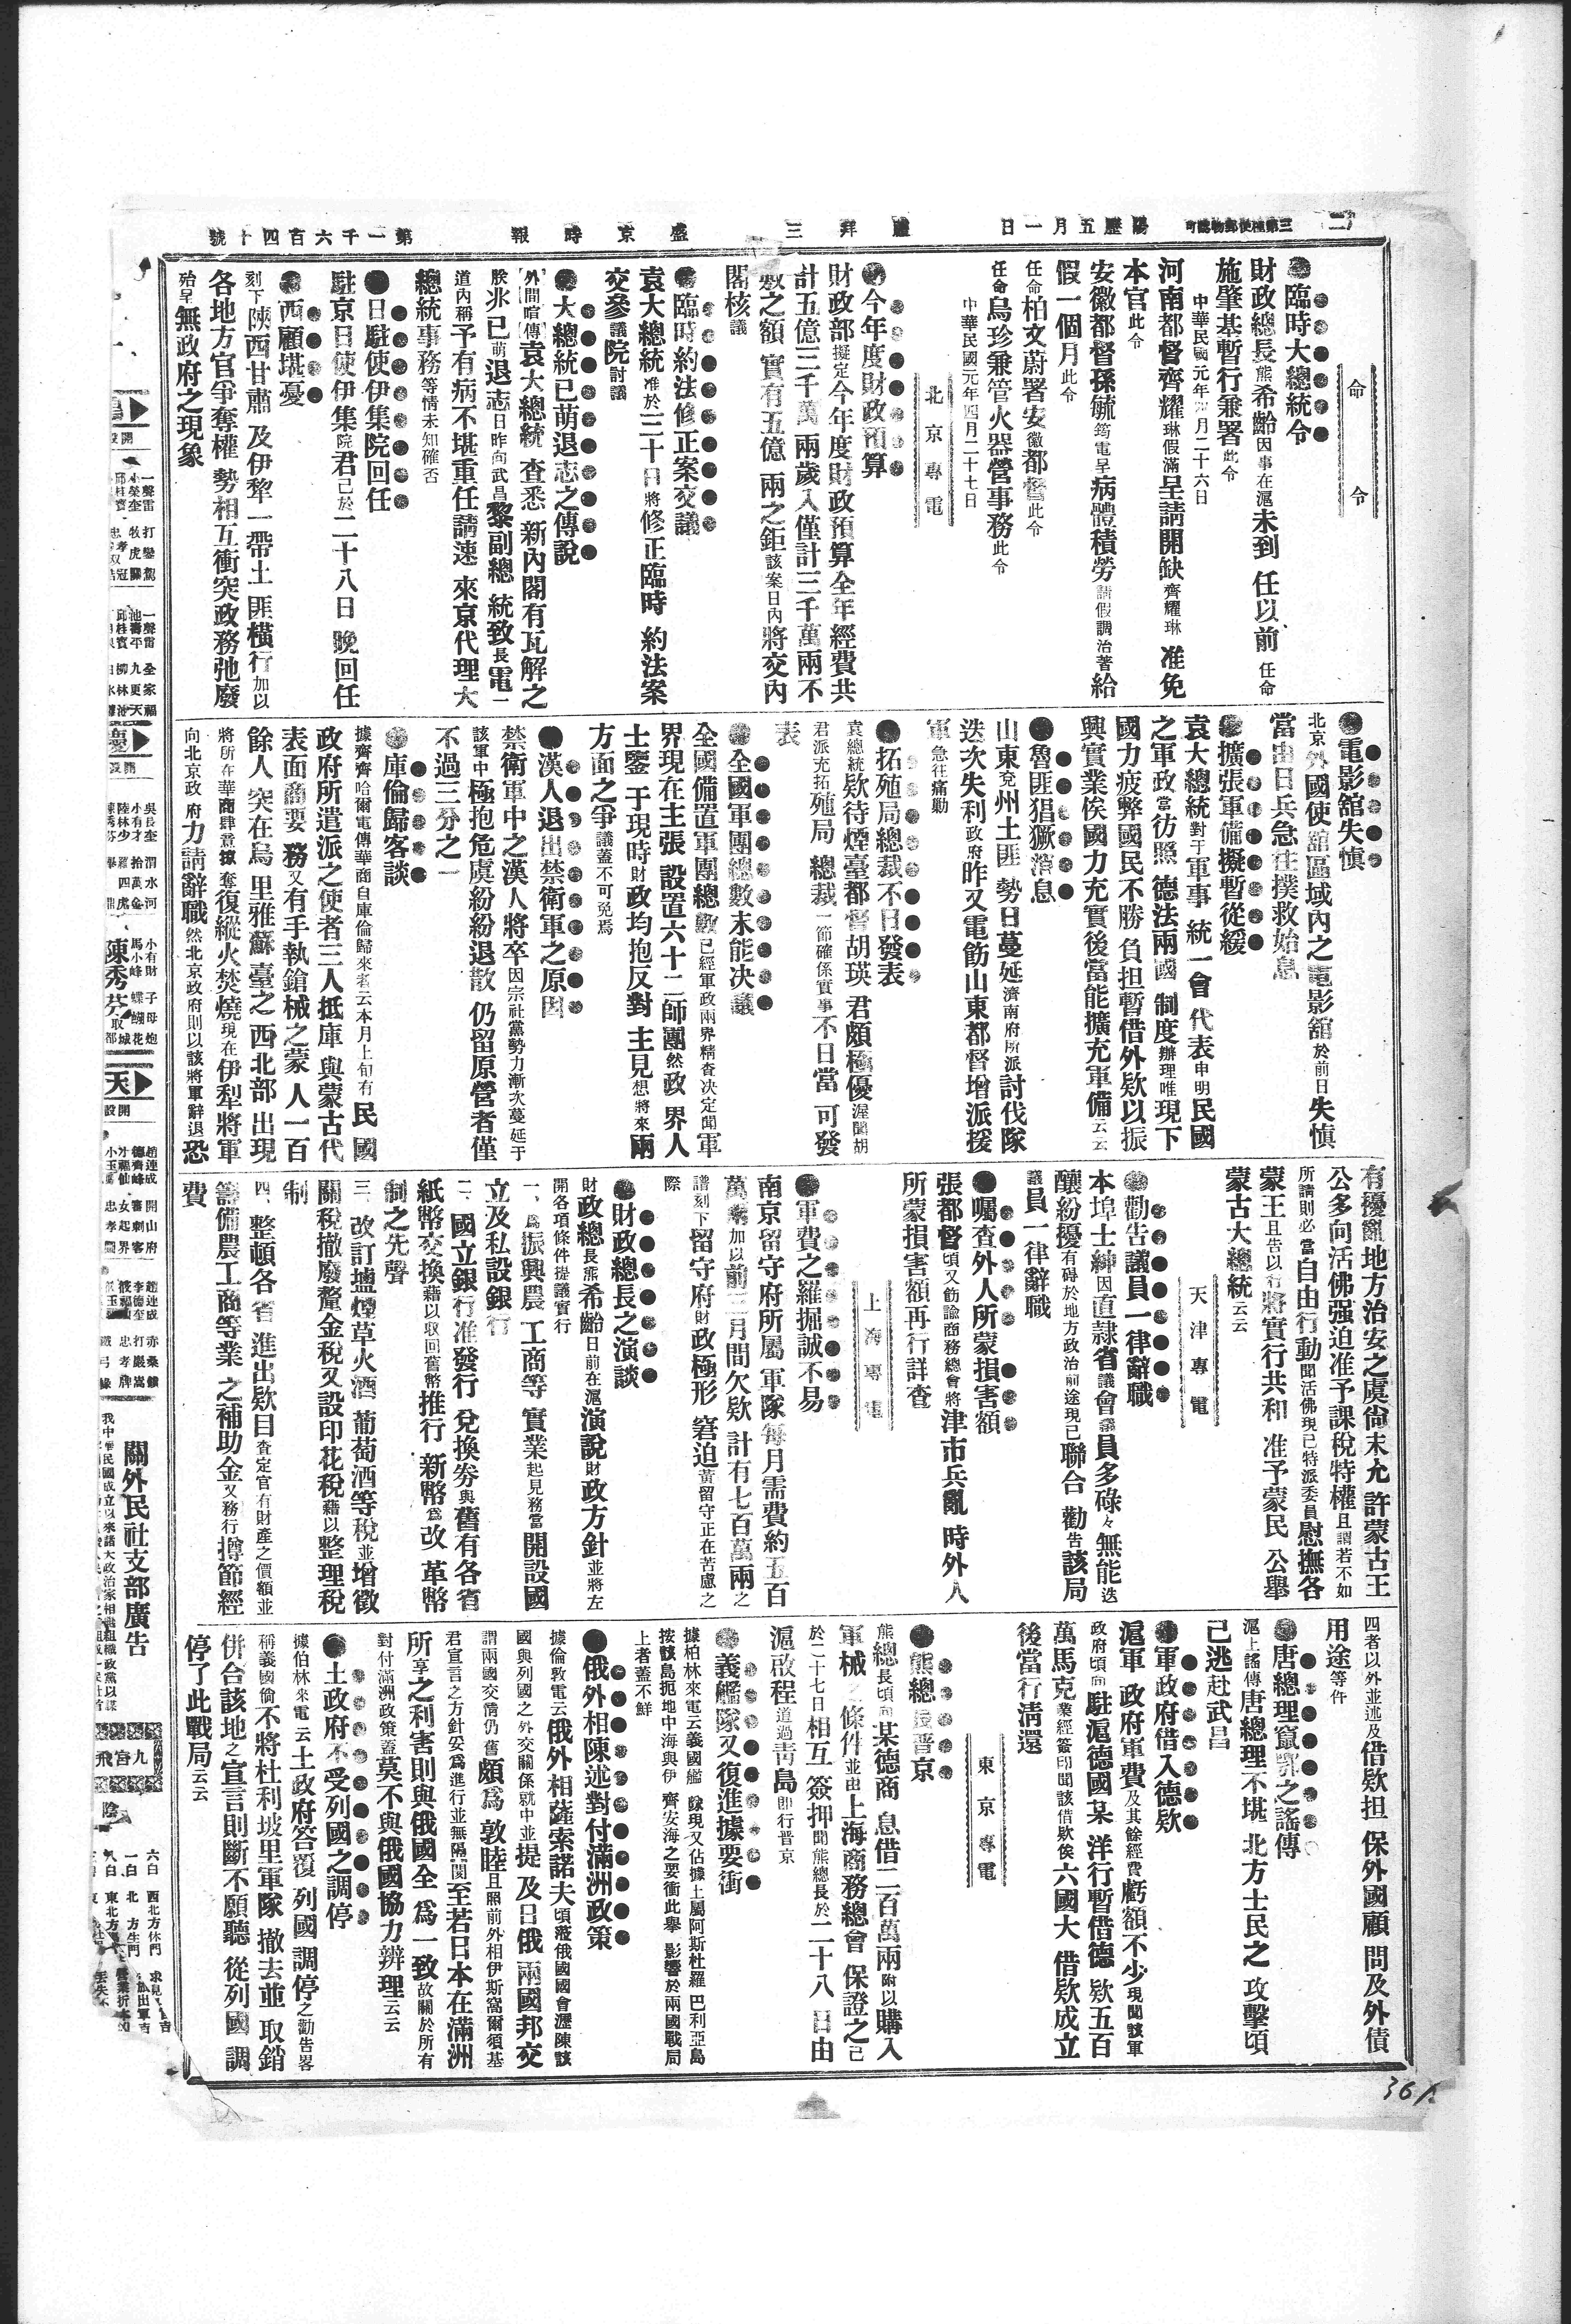 (二)
三第種便郵物認可
陽歷五月一日
禮拜三
盛京時報
第一千六百四十號
命令
●臨時大總統令
財政總長熊希齡因事在滬未到任以前任命
施肇基暫行兼署此令
中華民國元年四月二十六日
河南都督齊耀琳假滿呈請開缺齊耀琳准免
本官此令
安徽都督孫毓筠電呈病體積勞請假調治著給
假一個月此令
任命柏文蔚署安徽都督此令
任命烏珍兼管火器營事務此令
中華民國元年四月二十七日
北京專電
●今年度財政預算
財政部擬定今年度財政預算全年經費共
計五億三千萬兩歲入僅計三千萬兩不
敷之額實有五億兩之鉅該案日內將交內
閣核議
●臨時約法修正案交議
袁大總統准於三十日將修正臨時約法案
交參議院討議
●大總統已萌退志之傳說
外間喧傳袁大總統查悉新內閣有瓦解之
朕兆已萌退志日昨向武昌黎副總統致長電一
道內稱予有病不堪重任請速來京代理大
總統事務等情未知確否
●日駐使伊集院回任
駐京日使伊集院君已於二十八日晚回任
●西顧堪憂
刻下陝西甘肅及伊犂一帶土匪橫行加以
各地方官爭奪權勢相互衝突政務弛廢
殆呈無政府之現象
●電影館失慎
北京外國使館區域內之電影館於前日失慎
當由日兵急往撲救始息
●擴張軍備擬暫從緩
袁大總統對于軍事統一會代表申明民國
之軍政當彷照德法兩國制度辦理唯現下
國力疲弊國民不勝負担暫借外欵以振
興實業俟國力充實後當能擴充軍備云云
●魯匪猖獗消息
山東兗州土匪勢日蔓延濟南府所派討伐隊
迭次失利政府昨又電飭山東都督增派援
軍急往痛勦
●拓殖局總裁不日發表
袁總統欵待煙臺都督胡瑛君頗極優渥聞胡
君派充拓殖局總裁一節確係實事不日當可發
表
●全國軍團總數未能决議
全國備置軍團總數已經軍政兩界精查决定聞軍
界現在主張設置六十二師團然政界人
士鑒于現時財政均抱反對主見想將來兩
方面之爭議蓋不可免焉
●漢人退出禁衛軍之原因
禁衛軍中之漢人將卒因宗社黨勢力漸次蔓延于
該軍中極抱危虞紛紛退散仍留原營者僅
不過三分之一
●庫倫歸客談
據齊齊哈爾電傳華商自庫倫歸來者云本月上旬有民國
政府所遣派之使者三人抵庫與蒙古代
表面商要務又有手執鎗械之蒙人一百
餘人突在烏里雅蘇臺之西北部出現
將所在華商肆意掠奪復縱火焚燒現在伊犁將軍
向北京政府力請辭職然北京政府則以該將軍辭退恐
有擾亂地方治安之虞尙未允許蒙古王
公多向活佛强迫准予課稅特權且謂若不如
所請則必當自由行動聞活佛現已特派委員慰撫各
蒙王且告以行將實行共和准予蒙民公舉
蒙古大總統云云
天津專電
●勸告議員一律辭職
本埠士紳因直隷省議會議員多碌々無能迭
釀紛擾有碍於地方政治前途現已聯合勸告該局
議員一律辭職
●囑查外人所蒙損害額
張都督頃又飭諭商務總會將津市兵亂時外人
所蒙損害額再行詳查
上海專電
●軍費之羅掘誠不易
南京留守府所屬軍隊每月需費約五百
萬兩加以前三月間欠欵計有七百萬兩之
譜刻下留守府財政極形窘迫黃留守正在苦慮之
際
●財政總長之演談
財政總長熊希齡日前在滬演說財政方針並將左
開各項條件提議實行
一、爲振興農工商等實業起見務當開設國
立及私設銀行
二、國立銀行准發行兌換劵與舊有各省
紙幣交換藉以収回舊幣推行新幣爲改革幣
制之先聲
三、改訂壚煙草火酒葡萄酒等稅並增徵
關稅撤廢釐金稅又設印花稅藉以整理稅
制
四、整頓各省進出欵目查定官有財產之價額並
籌備農工商等業之補助金又務行撙節經
費
四者以外並述及借欵担保外國顧問及外債
用途等件
●唐總理竄鄂之謠傳
滬上謠傳唐總理不堪北方士民之攻擊頃
已逃赴武昌
●軍政府借入德欵
滬軍政府軍費及其餘經費虧額不少現聞該軍
政府頃向駐滬德國某洋行暫借德欵五百
萬馬克業經簽印聞該借欵俟六國大借欵成立
後當行淸還
東京專電
●熊總長晋京
熊總長頃向某德商息借二百萬兩附以購入
軍械之條件並由上海商務總會保證之已
於二十七日相互簽押聞熊總長於二十八日由
滬啟程道過靑島即行晋京
●義艦隊又復進據要衝
據柏林來電云義國艦隊現又佔據土屬阿斯杜羅巴利亞島
按該島扼地中海與伊齊安海之要衝此舉影響於兩國戰局
上者蓋不鮮
●俄外相陳述對付滿洲政策
據倫敦電云俄外相薩索諾夫頃蒞俄國國會瀝陳該
國與列國之外交關係就中並提及日俄兩國邦交
謂兩國交情仍舊頗爲敦睦且照前外相伊斯窩爾須基
君宣言之方針妥爲進行並無隔閡至若日本在滿洲
所享之利害則與俄國全爲一致故關於所有
對付滿洲政策蓋莫不與俄國協力辨理云云
●土政府不受列國之調停
據伯林來電云土政府答覆列國調停之勸告畧
稱義國倘不將杜利坡里軍隊撤去並取銷
併合該地之宣言則斷不願聽從列國調
停了此戰局云云
開設
一聲雷
打鑾駕
牧虎關
開設
陳秀芬
天
開設
關外民社支部廣告
我中華民國成立以來諸大政治家相繼組織政黨以謀
九宮飛
六白
西北方休門
一白
北方生門
八白
東北方
361